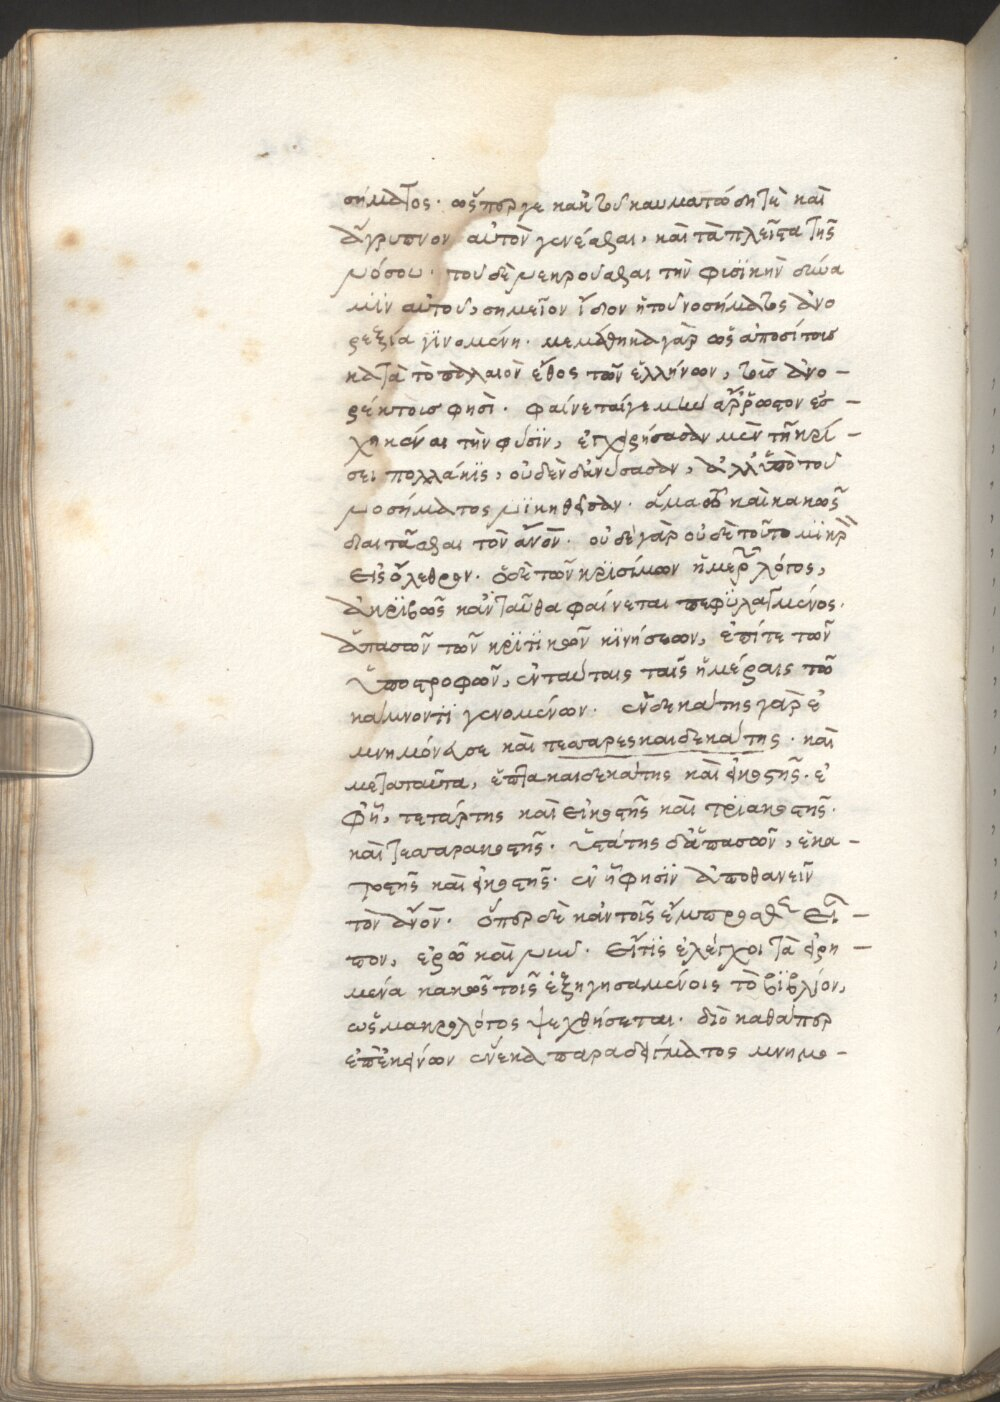 σήματος· ὥσπερ γε κἀκ τοῦ καυματώδη τὲ καὶ
ἄγρυπνον αὐτὸν γενέσθαι· καὶ τὰ πλεῖστα τῆς
νόσου· τοῦ δὲ νεκροῦσθαι τὴν φυσϊκὴν δύνα
μϊν αὐτοῦ, σημεῖον ἴδιον ἡ τοῦ νοσήματος ἀνο
ρεξία γϊνομένη· μεμάθηκα γὰρ ὡς ἀποσίτοις
κατὰ τὸ παλαιὸν ἔθος τῶν ἑλλήνων, τοῖς ἀνο-
ρέκτοις φησὶ· φαίνεται γε μὴν ἄρρωστον ἐσ-
χηκέναι τὴν φύσϊν, ἐγχειρήσασαν μὲν τῇ κρί-
σει πολλάκϊς, οὐδὲν δ' ἀνύσασαν, ἀλλ' ὑπὸ τοῦ
νοσήματος νϊκηθεῖσαν· ἅμα τῶ καὶ κακῶς
διαιτᾶσθαι τὸν ἄνον· οὐδὲ γὰρ οὐδὲ τοῦτο μϊκρὸν
εἰς ὄλεθρον· ὁ δὲ τῶν κρϊσίμων ἡμερῶν λόγος,
ἀκρϊβῶς κἀνταῦθα φαίνεται πεφϋλαγμένος·
ἁπασῶν τῶν κρϊτϊκῶν κϊνήσεων, ἐπί τε τῶν
ὑποστροφῶν, ἐν ταύταις ταῖς ἡμέραις τῶ
κάμνοντι γενομένων· ἑνδεκάτης γὰρ ἐ
μνημόνευσε καὶ τεσσαρεσκαιδεκάτης· καὶ
μετὰ ταῦτα, ἑπτακαιδεκάτης καὶ εἰκοστῆς· ἐ
φ' ᾗ, τετάρτης καὶ εἰκοστῆς καὶ τρϊακοστῆς·
καὶ τεσσαρακοστῆς· ὑστάτης δ' ἁπασῶν, ἑκα-
τοστῆς καὶ εἰκοστῆς· ἐν ᾗ φησϊν ἀποθανεῖν
τὸν ἄνον· ὅπερ δὲ κἀν τοῖς ἔμπροσθεν εἶ-
πον, ἐρῶ καὶ νῦν· εἴ τϊς ἐλέγχοι τὰ εἰρη-
μένα κακῶς τοῖς ἐξηγησαμένοις τὸ βϊβλίον,
ὡς μακρολόγος ψεχθήσεται· διὸ καθάπερ
ἐπ' ἐκείνων ἕνεκα παραδείγματος μνημο-